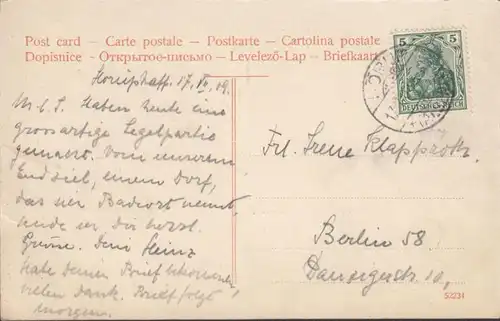 Post card – Carte postale – Postkarte – Cartolina postale
Dopisnice - Открытое-письмо – Levelező-Lap – Briefkaart
5 5
DEUTSCHES REICH
17.
M. l. S. Haben heute eine
grossartige Segelpartie
gemacht. Von unserem
Endziel, einem Dorf,
das sich Badeort nennt,
sende ich Dir herzl.
Grüsse. Dein Heinz
Habe deinen Brief bekommen
vielen Dank. Brief folgt
morgen.
Frl. Irene Klapproth.
Berlin 58
Danzigerstr. 10,
52231